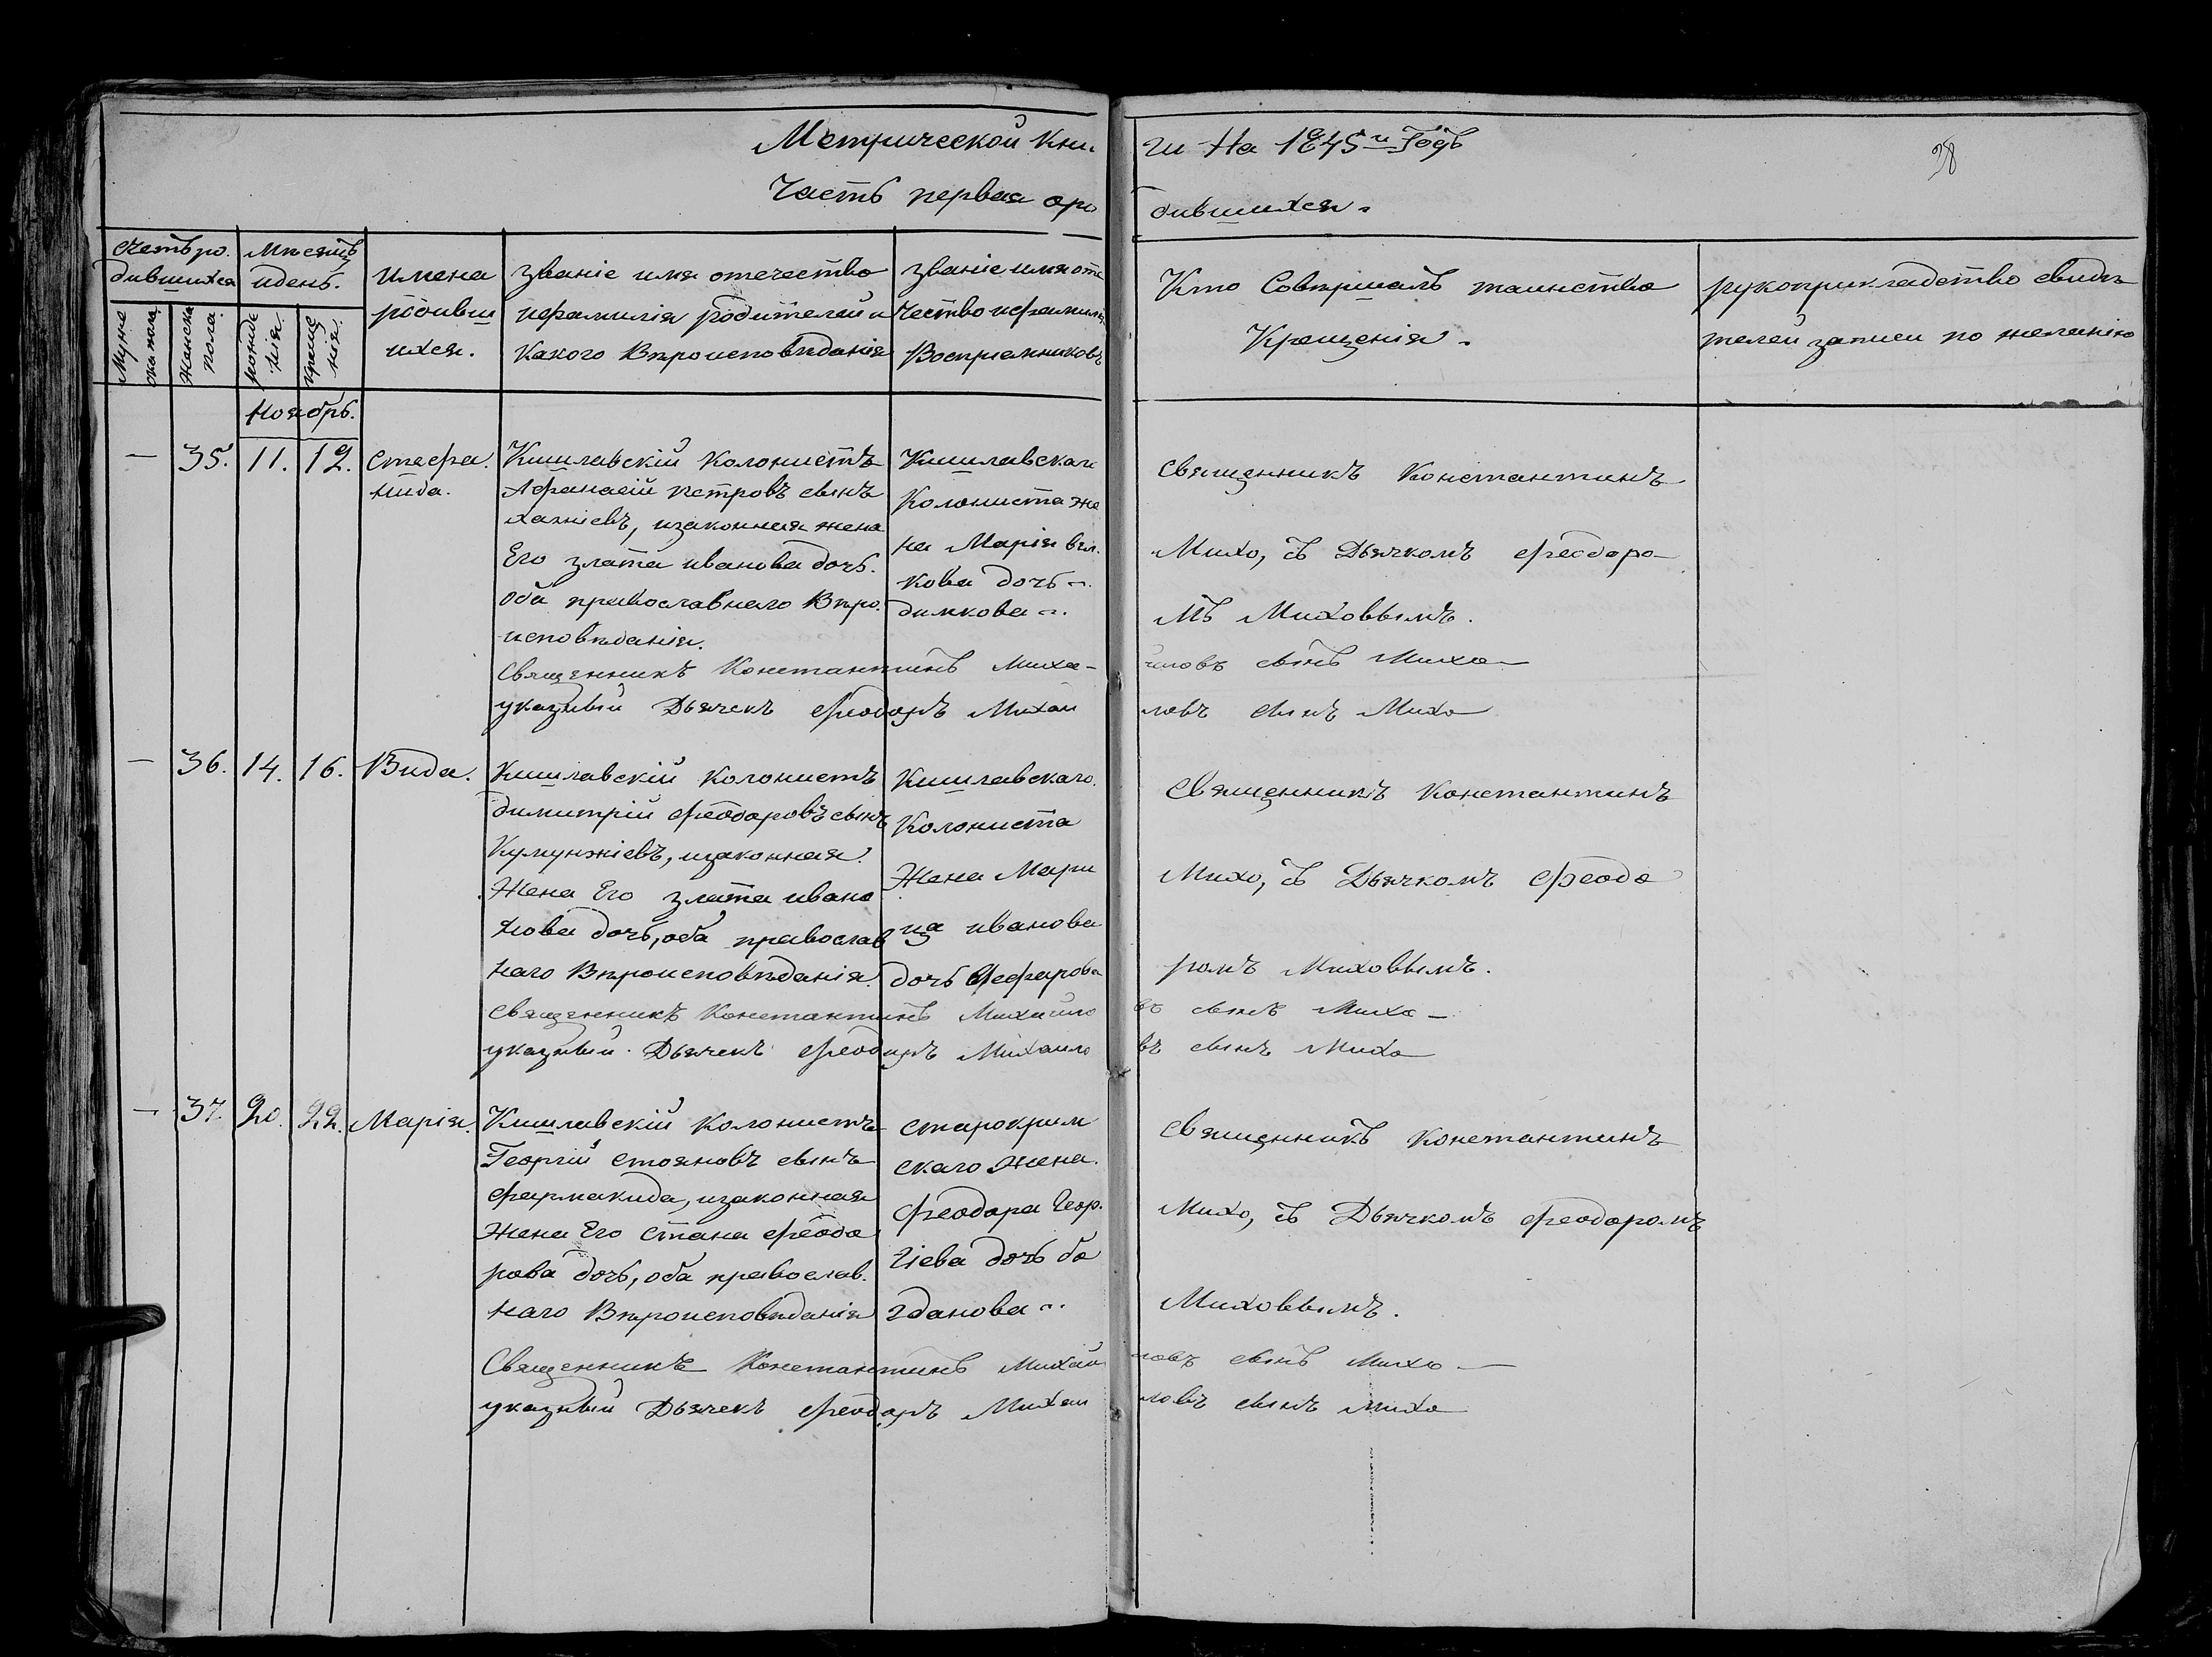 Метрической Кни
ги На 1845й Годъ
38
Часть первая оро
дившихся.
Счетъ ро.
дившихся
Мѣсяцъ
идень.
имена
рōдивш
ихся.
званіе имя отечество
ифамилія родителей и
Какого Вѣроисповѣданія
званіе имя оте
Чество ифамилія
Воспріемниковъ
Кто Совѣршалъ таинство
Крещенія.
рукоприкладство свидѣ
телей записи по желанію
Муже
ска пола
Женска
пола.
рожде
нія.
креще
нія.
Ноябрь.
— 35. 11. 12.
Стефа.
нида.
Кишлавскій Колонистъ
Афанасій Петровъ сынъ
изаконная жена
Его злата иванова дочь.
оба православнаго Вѣро.
исповѣданія.
Кишлавскаго
Колониста же
на Марія вел.
кова дочь
димкова
Священникъ Константинъ
Михо, съ Дьячкомъ Феодоро
мъ Миховымъ.
Священникъ Константинъ Миха-
иловъ сынъ Михо
указный Дьячекъ Феодоръ Михаи
ловъ сынъ Михо
— 36. 14. 16. Вида.
Кишлавскій Колонистъ
Димитрій Феодоровъ сынъ
Кумунжіевъ, изаконная
Жена Его злата ивано
нова дочь, оба православ
наго Вѣроисповѣданія.
Кишлавскаго
Колониста
Жена Мари
ца иванова
дочь
Священникъ Константинъ
Михо, съ Дьячкомъ Феодо
ромъ Миховымъ.
Священникъ Константинъ Михайло
въ сынъ Михо
указный Дьячекъ Феодоръ Михаило
въ сынъ Михо
— 37. 20. 22. Марія.
Кишлавскій Колонистъ
Георгій Стояновъ сынъ
Фармакида, изаконная
Жена Его Стана Феодо
рова дочь, оба православ.
наго Вѣроисповѣданія
Старокрим
скаго Жена
Феодора Геор.
гіева дочь бо
гданова
Священникъ Константинъ
Михо, съ Дьячкомъ Феодоромъ
Миховымъ.
Священникъ Константинъ Михаи
ловъ сынъ Михо
указный Дьячекъ Феодоръ Михаи
ловъ сынъ Михо